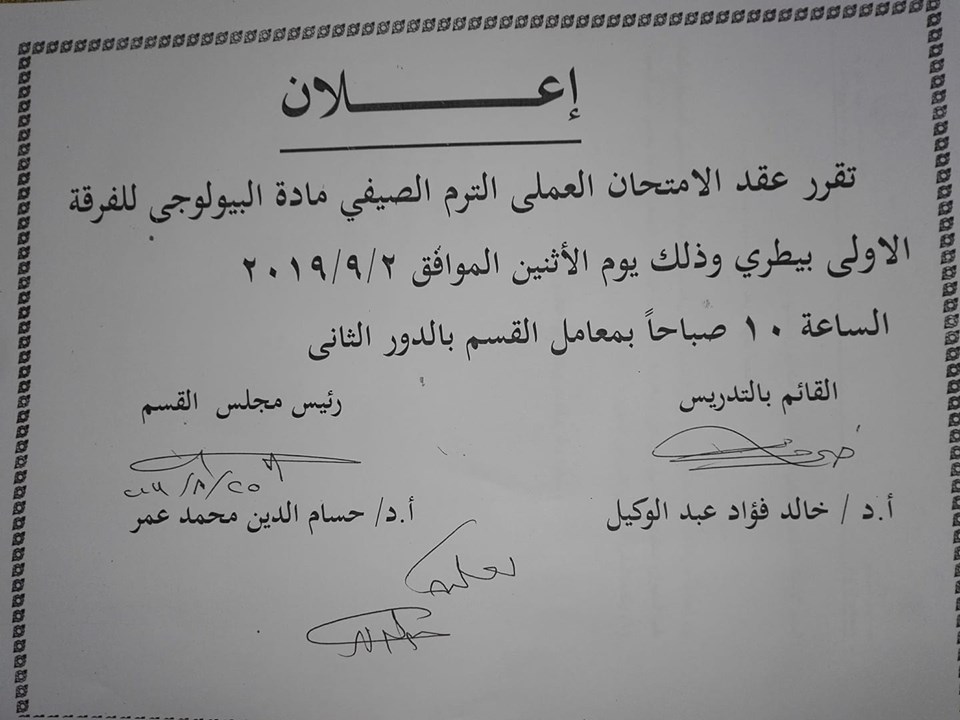 إعـــــــــلان
تقرر عقد الامتحان العملى الترم الصيفي مادة البيولوجى للفرقة
الاولى بيطري وذلك يوم الأثنين الموافق ٢٠١٩/٩/٢
الساعة ١٠ صباحاً بمعامل القسم بالدور الثانى
القائم بالتدريس
رئيس مجلس القسم
أ.د / خالد فؤاد عبد الوكيل
أ.د/ حسام الدين محمد عمر